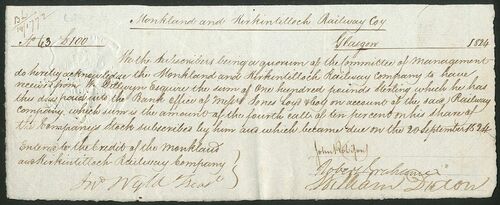 Monkland and Kirkintilloch Railway Coy
No 63. £100 Glasgow 1824
We the Subscribers being a quorum of the Committee of Management
do hereby acknowledge the Monkland and Kirkintilloch Railway Company to have
received from Esquire the sum of One hundred pounds sterling which he has
this day paid into the Bank Office of Messrs Jones Loyd & Co on account of the said Railway
Company, which sum is the amount of the fourth call of ten percent on his share of
the Company's Stock subscribed by him and which became due on the 20 September 1824
Entered to the Credit of the Monkland
and Kirkintilloch Railway Company
Robert Grahame
William Dixon